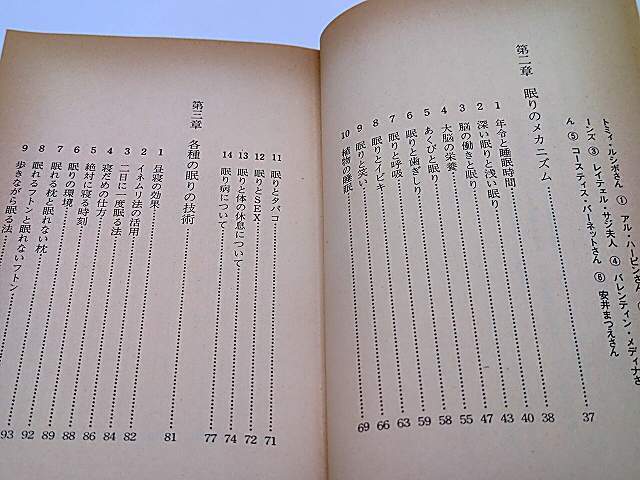 トミィ・ルシボさん ① アル・ハーピンさん
ーンズ ③ レイティル・サジ夫人 ④ バレンティン・メディナさ
ん ⑤ コースティス・バーネットさん ⑥ 安井まつえさん
37
第二章 眠りのメカニズム 38
1 年令と睡眠時間 40
2 深い眠りと浅い眠り 43
3 脳の働きと眠り 47
4 大脳の栄養 55
5 あくびと眠り 58
6 眠りと歯ぎしり 59
7 眠りと呼吸 63
8 眠りとイビキ 66
9 眠りと笑い 69
10 植物の睡眠
11 眠りとタバコ 71
12 眠りとSEX 72
13 眠りと体の休息について 74
14 眠り病について 77
第三章 各種の眠りの技術 81
1 昼寝の効果
2 イネムリ法の活用 82
3 二日に一度眠る法 84
4 寝だめの仕方 84
5 絶対に寝る時刻 86
6 眠りの環境 88
7 眠れる枕と眠れない枕 89
8 眠れるフトンと眠れないフトン 92
9 歩きながら眠る法 93